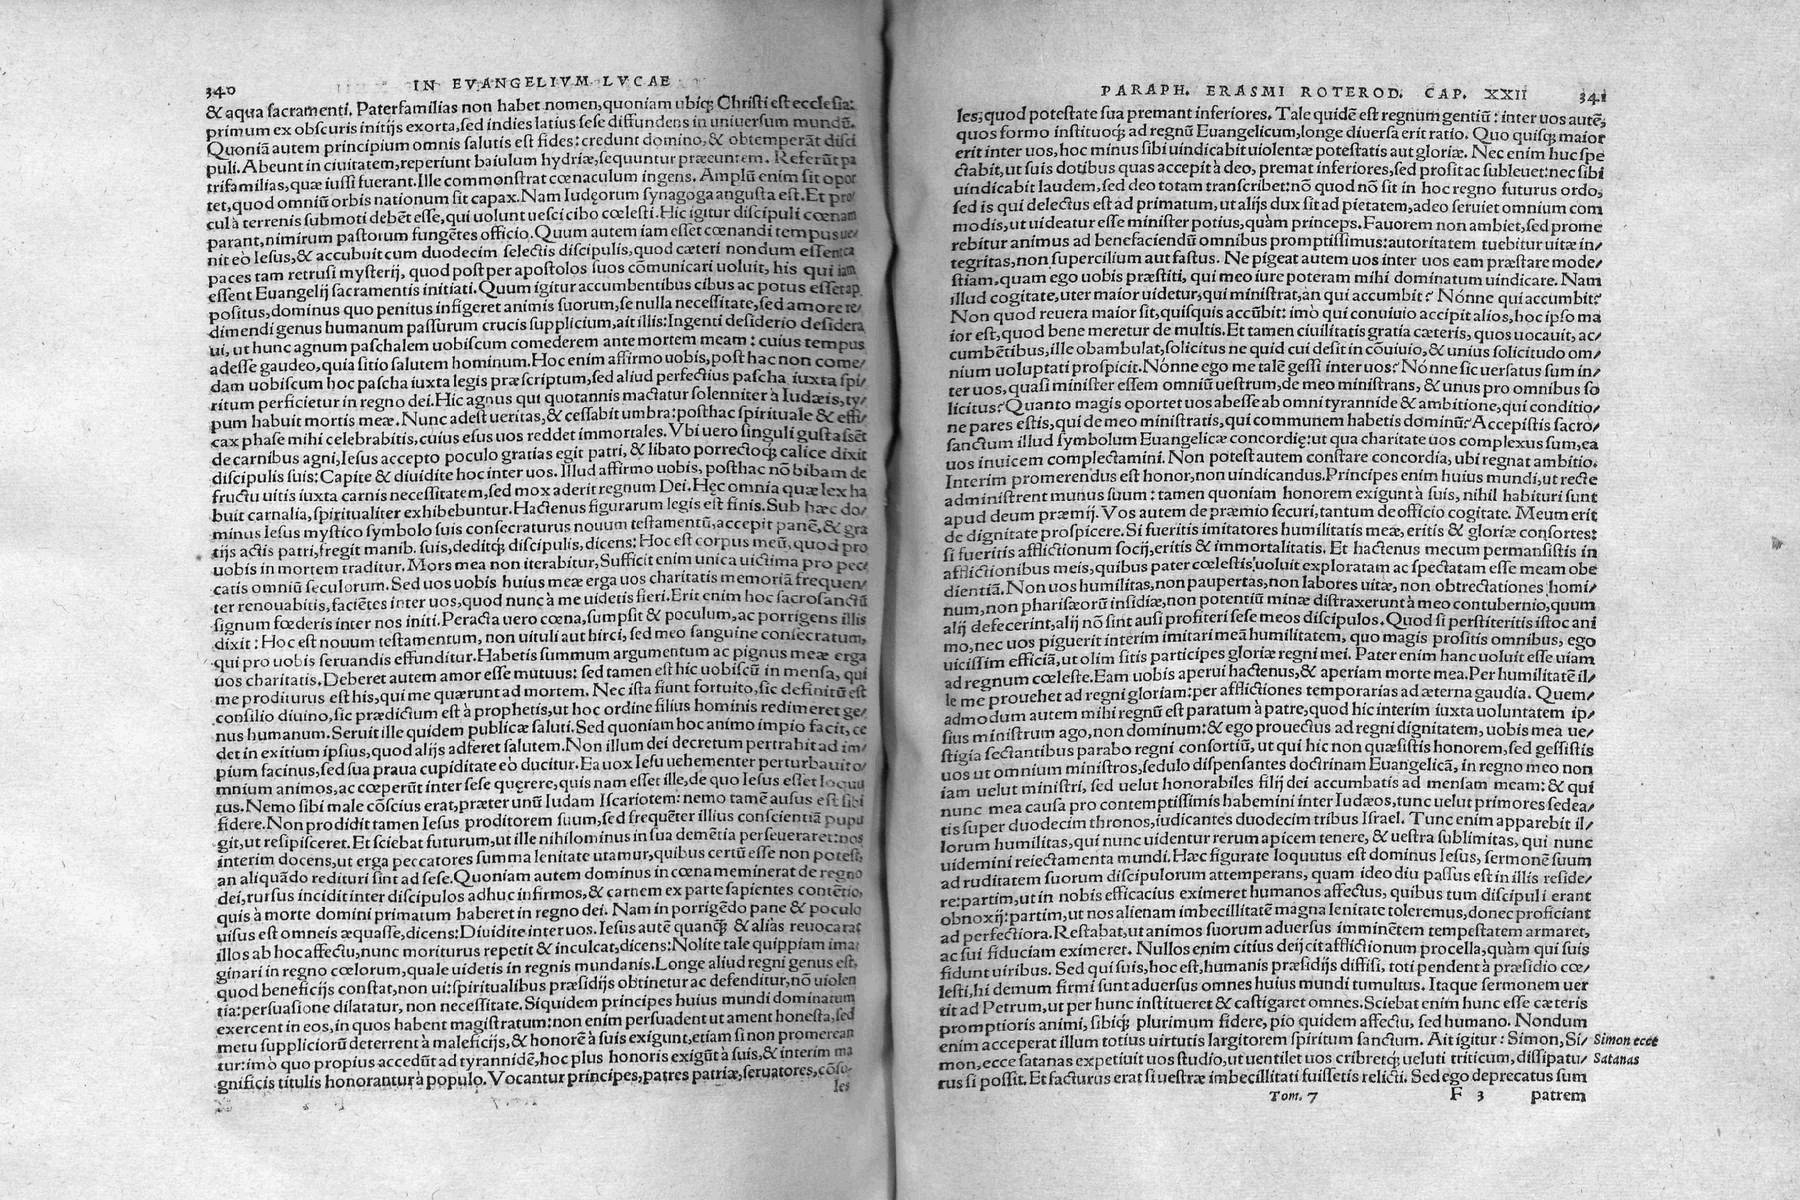 340 IN EVANGELIVM LVCAE
& aqua sacramenti. Paterfamilias non habet nomen, quoniam ubiq; Christi est ecclesia:
primum ex obscuris initijs exorta, sed indies latius sese diffundens in uniuersum mundũ.
Quoniã autem principium omnis salutis est fides: credunt domino, & obtemperãt disci
puli. Abeunt in ciuitatem, reperiunt baiulum hydriæ, sequuntur præeuntem. Referũt pa
trifamilias, quæ iussi fuerant. Ille commonstrat cœnaculum ingens. Amplũ enim sit opor
tet, quod omniũ orbis nationum sit capax. Nam Iudęorum synagoga angusta est. Et pro
cul à terrenis submoti debẽt esse, qui uolunt uesci cibo cœlesti. Hic igitur discipuli cœnam
parant, nimirum pastorum fungẽtes officio. Quum autem iam esset cœnandi tempus ue/
nit eò Iesus, & accubuit cum duodecim selectis discipulis, quod cæteri nondum essent ca
paces tam retrusi mysterij, quod post per apostolos suos cõmunicari uoluit, his qui iam
essent Euangelij sacramentis initiati. Quum igitur accumbentibus cibus ac potus esset ap
positus, dominus quo penitus infigeret animis suorum, se nulla necessitate, sed amore re/
dimendi genus humanum passurum crucis supplicium, ait illis: Ingenti desiderio desidera
ui, ut hunc agnum paschalem uobiscum comederem ante mortem meam: cuius tempus
adesse gaudeo, quia sitio salutem hominum. Hoc enim affirmo uobis, post hac non come/
dam uobiscum hoc pascha iuxta legis præscriptum, sed aliud perfectius pascha iuxta spi/
ritum perficietur in regno dei. Hic agnus qui quotannis mactatur solenniter à Iudæis, ty/
pum habuit mortis meæ. Nunc adest ueritas, & cessabit umbra: posthac spirituale & effi/
cax phase mihi celebrabitis, cuius esus uos reddet immortales. Vbi uero singuli gustassẽt
de carnibus agni, Iesus accepto poculo gratias egit patri, & libato porrectoq; calice dixit
discipulis suis: Capite & diuidite hoc inter uos. Illud affirmo uobis, posthac nõ bibam de
fructu uitis iuxta carnis necessitatem, sed mox aderit regnum Dei. Hęc omnia quæ lex ha
buit carnalia, spiritualiter exhibebuntur. Hactenus figurarum legis est finis. Sub hæc do/
minus Iesus mystico symbolo suis consecraturus nouum testamentũ, accepit panẽ, & gra
tijs actis patri, fregit manib. suis, deditq; discipulis, dicens: Hoc est corpus meũ, quod pro
uobis in mortem traditur. Mors mea non iterabitur, Sufficit enim unica uictima pro pec
catis omniũ seculorum. Sed uos uobis huius meæ erga uos charitatis memoriã frequen/
ter renouabitis, faciẽtes inter uos, quod nunc à me uidetis fieri. Erit enim hoc sacrosanctũ
signum fœderis inter nos initi. Peracta uero cœna, sumpsit & poculum, ac porrigens illis
dixit: Hoc est nouum testamentum, non uituli aut hirci, sed meo sanguine consecratum,
qui pro uobis seruandis effunditur. Habetis summum argumentum ac pignus meæ erga
uos charitatis. Deberet autem amor esse mutuus: sed tamen est hic uobiscũ in mensa, qui
me proditurus est his, qui me quærunt ad mortem. Nec ista fiunt fortuito, sic definitũ est
consilio diuino, sic prædictum est à prophetis, ut hoc ordine filius hominis redimeret ge/
nus humanum. Seruit ille quidem publicæ saluti. Sed quoniam hoc animo impio facit, ce
det in exitium ipsius, quod alijs adferet salutem. Non illum dei decretum pertrahit ad im/
pium facinus, sed sua praua cupiditate eò ducitur. Ea uox Iesu uehementer perturbauit o/
mnium animos, ac cœperũt inter sese quęrere, quis nam esset ille, de quo Iesus esset loquu
tus. Nemo sibi male cõscius erat, præter unũ Iudam Iscariotem: nemo tamẽ ausus est sibi
fidere. Non prodidit tamen Iesus proditorem suum, sed frequẽter illius conscientiã pupu
git, ut resipisceret. Et sciebat futurum, ut ille nihilominus in sua demẽtia perseueraret: nos
interim docens, ut erga peccatores summa lenitate utamur, quibus certũ esse non potest,
an aliquãdo redituri sint ad sese. Quoniam autem dominus in cœna meminerat de regno
dei, rursus incidit inter discipulos adhuc infirmos, & carnem ex parte sapientes contẽtio,
quis à morte domini primatum haberet in regno dei. Nam in porrigẽdo pane & poculo
uisus est omneis æquasse, dicens: Diuidite inter uos. Iesus autẽ quanq; & aliàs reuocarat
illos ab hoc affectu, nunc moriturus repetit & inculcat, dicens: Nolite tale quippiam ima/
ginari in regno cœlorum, quale uidetis in regnis mundanis. Longe aliud regni genus est,
quod beneficijs constat, non ui: spiritualibus præsidijs obtinetur ac defenditur, nõ uiolen
tia: persuasione dilatatur, non necessitate. Siquidem principes huius mundi dominatum
exercent in eos, in quos habent magistratum: non enim persuadent ut ament honesta, sed
metu suppliciorũ deterrent à maleficijs, & honorẽ à suis exigunt, etiam si non promerean
tur: imò quo propius accedũt ad tyrannidẽ, hoc plus honoris exigũt à suis, & interim ma
gnificis titulis honorantur à populo. Vocantur principes, patres patriæ, seruatores, cõsu-
les
PARAPH. ERASMI ROTEROD. CAP. XXII 341
les, quod potestate sua premant inferiores. Tale quidẽ est regnum gentiũ: inter uos autẽ,
quos formo instituoq; ad regnũ Euangelicum, longe diuersa erit ratio. Quo quisq; maior
erit inter uos, hoc minus sibi uindicabit uiolentæ potestatis aut gloriæ. Nec enim huc spe
ctabit, ut suis dotibus quas accepit à deo, premat inferiores, sed prosit ac subleuet: nec sibi
uindicabit laudem, sed deo totam transcribet: nõ quod nõ sit in hoc regno futurus ordo,
sed is qui delectus est ad primatum, ut alijs dux sit ad pietatem, adeo seruiet omnium com
modis, ut uideatur esse minister potius, quàm princeps. Fauorem non ambiet, sed prome
rebitur animus ad benefaciendũ omnibus promptissimus: autoritatem tuebitur uitæ in/
tegritas, non supercilium aut fastus. Ne pigeat autem uos inter uos eam præstare mode/
stiam, quam ego uobis præstiti, qui meo iure poteram mihi dominatum uindicare. Nam
illud cogitate, uter maior uidetur, qui ministrat, an qui accumbit? Nónne qui accumbit?
Non quod reuera maior sit, quisquis accũbit: imò qui conuiuio accipit alios, hoc ipso ma
ior est, quod bene meretur de multis. Et tamen ciuilitatis gratia cæteris, quos uocauit, ac/
cumbẽtibus, ille obambulat, solicitus ne quid cui desit in cõuiuio, & unius solicitudo om/
nium uoluptati prospicit. Nónne ego me talẽ gessi inter uos? Nónne sic uersatus sum in/
ter uos, quasi minister essem omniũ uestrum, de meo ministrans, & unus pro omnibus so
licitus? Quanto magis oportet uos abesse ab omni tyrannide & ambitione, qui conditio/
ne pares estis, qui de meo ministratis, qui communem habetis dominũ? Accepistis sacro/
sanctum illud symbolum Euangelicæ concordię: ut qua charitate uos complexus sum, ea
uos inuicem complectamini. Non potest autem constare concordia, ubi regnat ambitio.
Interim promerendus est honor, non uindicandus. Principes enim huius mundi, ut recte
administrent munus suum: tamen quoniam honorem exigunt à suis, nihil habituri sunt
apud deum præmij. Vos autem de præmio securi, tantum de officio cogitate. Meum erit
de dignitate prospicere. Si fueritis imitatores humilitatis meæ, eritis & gloriæ consortes:
si fueritis afflictionum socij, eritis & immortalitatis. Et hactenus mecum permansistis in
afflictionibus meis, quibus pater cœlestis uoluit exploratam ac spectatam esse meam obe
dientiã. Non uos humilitas, non paupertas, non labores uitæ, non obtrectationes homi/
num, non pharisæorũ insidiæ, non potentiũ minæ distraxerunt à meo contubernio, quum
alij defecerint, alij nõ sint ausi profiteri sese meos discipulos. Quod si perstiteritis istoc ani
mo, nec uos piguerit interim imitari meã humilitatem, quo magis prositis omnibus, ego
uicissim efficiã, ut olim sitis participes gloriæ regni mei. Pater enim hanc uoluit esse uiam
ad regnum cœleste. Eam uobis aperui hactenus, & aperiam morte mea. Per humilitatẽ il/
le me prouehet ad regni gloriam: per afflictiones temporarias ad æterna gaudia. Quem/
admodum autem mihi regnũ est paratum à patre, quod hic interim iuxta uoluntatem ip/
sius ministrum ago, non dominum: & ego prouectus ad regni dignitatem, uobis mea ue/
stigia sectantibus parabo regni consortiũ, ut qui hic non quæsistis honorem, sed gessistis
uos ut omnium ministros, sedulo dispensantes doctrinam Euangelicã, in regno meo non
iam uelut ministri, sed uelut honorabiles filij dei accumbatis ad mensam meam: & qui
nunc mea causa pro contemptissimis habemini inter Iudæos, tunc uelut primores sedea/
tis super duodecim thronos, iudicantes duodecim tribus Israel. Tunc enim apparebit il/
lorum humilitas, qui nunc uidentur rerum apicem tenere, & uestra sublimitas, qui nunc
uidemini reiectamenta mundi. Hæc figurate loquutus est dominus Iesus, sermonẽ suum
ad ruditatem suorum discipulorum attemperans, quam ideo diu passus est in illis reside/
re: partim, ut in nobis efficacius eximeret humanos affectus, quibus tum discipuli erant
obnoxij: partim, ut nos alienam imbecillitatẽ magna lenitate toleremus, donec proficiant
ad perfectiora. Restabat, ut animos suorum aduersus imminẽtem tempestatem armaret,
ac sui fiduciam eximeret. Nullos enim citius deijcit afflictionum procella, quàm qui suis
fidunt uiribus. Sed qui suis, hoc est, humanis præsidijs diffisi, toti pendent à præsidio cœ/
lesti, hi demum firmi sunt aduersus omnes huius mundi tumultus. Itaque sermonem uer
tit ad Petrum, ut per hunc institueret & castigaret omnes. Sciebat enim hunc esse cæteris
promptioris animi, sibiq; plurimum fidere, pio quidem affectu, sed humano. Nondum
enim acceperat illum totius uirtutis largitorem spiritum sanctum. Ait igitur: Simon, Si/ Simon ecce
mon, ecce satanas expetiuit uos studio, ut uentilet uos cribretq; ueluti triticum, dissipatu/ Satanas
rus si possit. Et facturus erat si uestræ imbecillitati fuissetis relicti. Sed ego deprecatus sum
Tom. 7 F 3 patrem